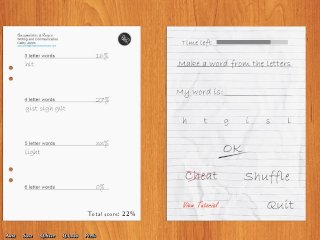 Writing and Communication
3 letter words
hit
4 letter words
gist sigh gilt
5 letter words
light
6 letter words 0%
Total score: 22%
Time left:
Make a word from the letters
My word is:
h t g i s l
OK
Cheat Shuffle
View Tutorial ... Quit